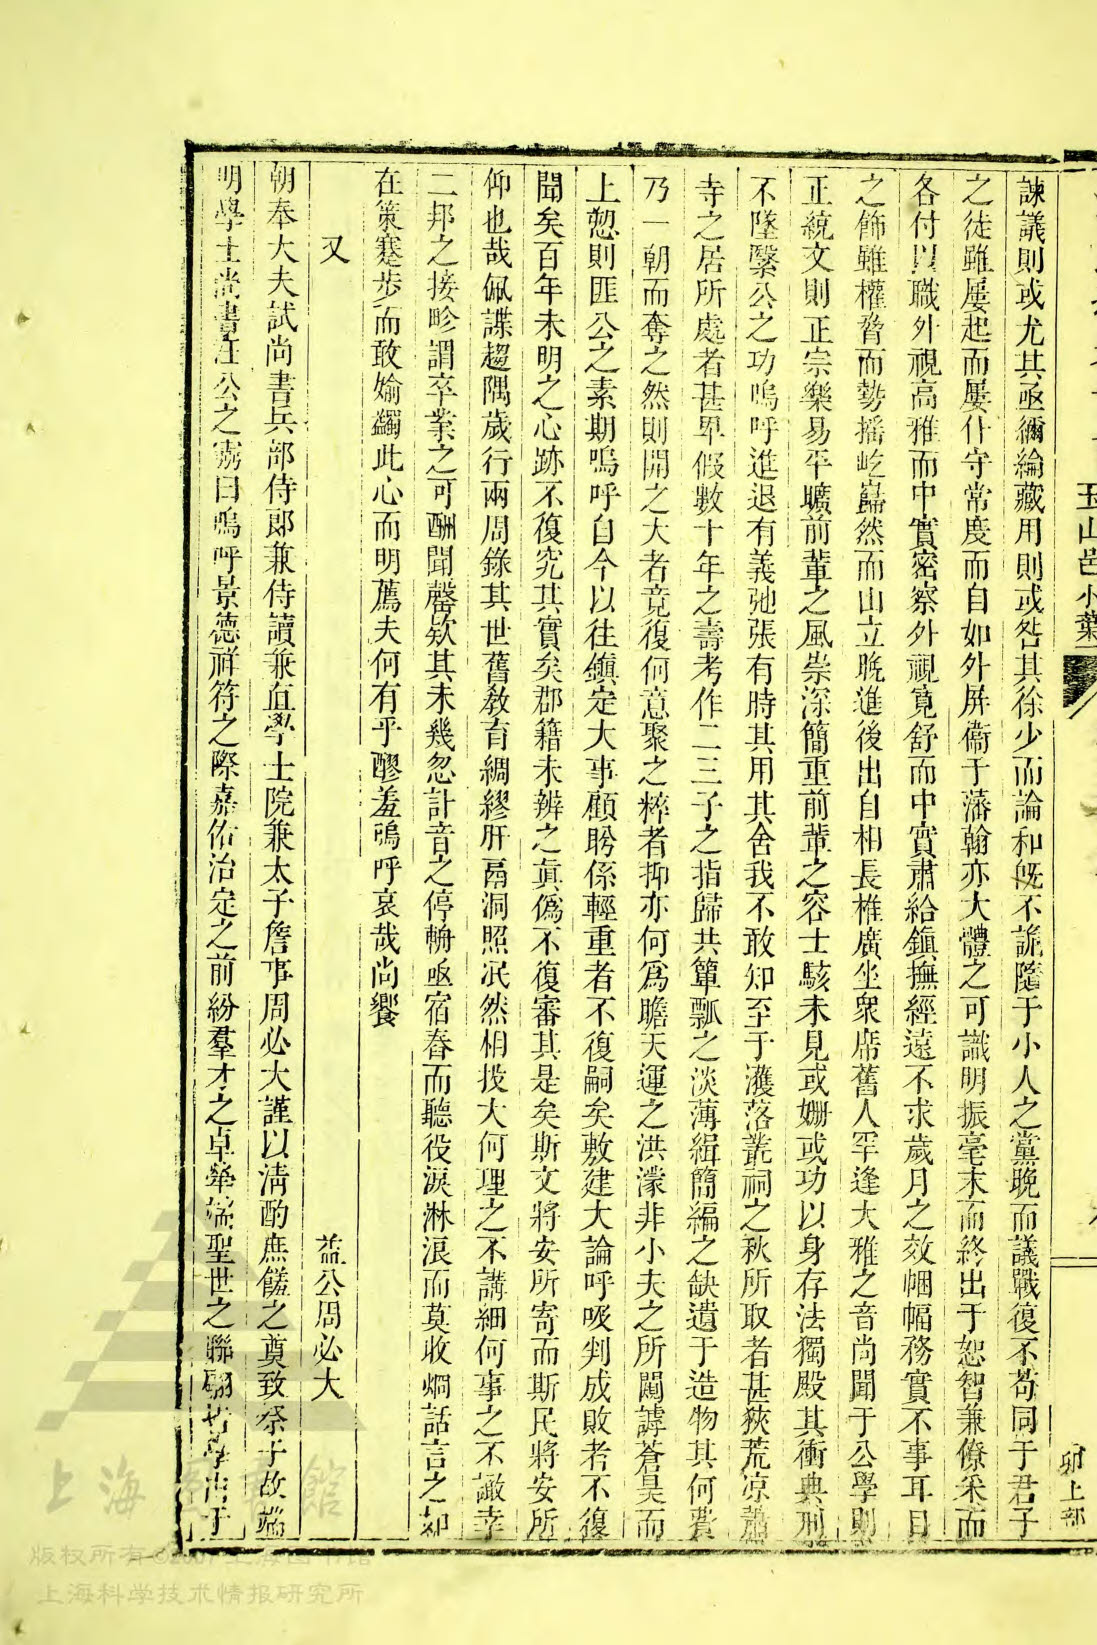 諫議則或尤其亟彌綸藏用則或咎其徐少而論和旣不詭隨于小人之黨晚而議戰復不苟同于君子
之徒雖屢起而屢仆守常度而自如外屏衞于藩翰亦大體之可識明振毫末而終出于恕智兼僚采而
各付以職外視高雅而中實密察外視寬舒而中實肅給鎭撫經遠不求歲月之效悃愊務實不事耳目
之飾雖權脅而勢搖屹巋然而山立晚進後出自相長椎廣坐衆席舊人罕逢大雅之音尚聞于公學則
正統文則正宗樂易平曠前輩之風崇深簡重前輩之容士駭未見或姍或功以身存法獨殿其衝典刑
不墜繄公之功嗚呼進退有義弛張有時其用其舍我不敢知至于濩落叢祠之秋所取者甚狹荒凉蕭
寺之居所處者甚𤰞假數十年之壽考作二三子之指歸共簞瓢之淡薄緝簡編之缺遺于造物其何費
乃一朝而奪之然則開之大者竟復何意聚之粹者抑亦何爲瞻天運之洪濛非小夫之所闚謼蒼昊而
上愬則匪公之素期嗚呼自今以往鎭定大事顧盻係輕重者不復嗣矣敷建大論呼吸判成敗者不復
聞矣百年未明之心跡不復究其實矣郡籍未辨之眞僞不復審其是矣斯文將安所寄而斯民將安所
仰也哉佩諜趨隅歲行兩周錄其世舊敎育綢繆肝鬲洞照泯然相投大何理之不講細何事之不諏幸
二邦之接畛謂卒業之可酬聞罄欬其未幾忽訃音之停輈亟宿舂而聽役淚淋浪而莫收烱話言之如
在策蹇步而敢媮蠲此心而明薦夫何有乎醪羞嗚呼哀哉尚饗
又
益公周必大
朝奉大夫試尚書兵部侍郞兼侍讀兼直學士院兼太子詹事周必大謹以淸酌庶饈之奠致祭于故端
明學士尚書汪公之靈曰嗚呼景德祥符之際嘉佑治定之前紛羣才之卓犖湍聖世之聯翩
玉山邑小葉
卯上部
上海圖書館
版权所有©2007上海图书馆
上海科学技术情报研究所